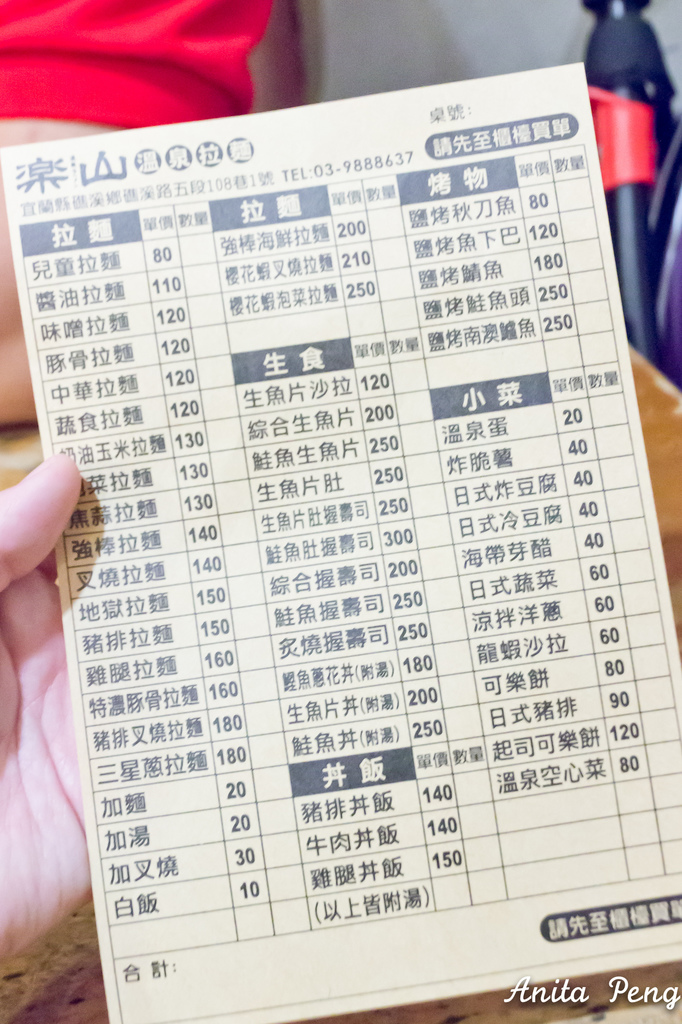 桌號:
請先至櫃檯買單
楽山 溫泉拉麵
宜蘭縣礁溪鄉礁溪路五段108巷1號 TEL:03-9888637
拉麵 單價 數量
兒童拉麵 80
醬油拉麵 110
味噌拉麵 120
豚骨拉麵 120
中華拉麵 120
蔬食拉麵 120
油玉米拉麵 130
菜拉麵 130
焦蒜拉麵 130
強棒拉麵 140
叉燒拉麵 140
地獄拉麵 150
豬排拉麵 150
雞腿拉麵 160
特濃豚骨拉麵 160
豬排叉燒拉麵 180
三星蔥拉麵 180
加麵 20
加湯 20
加叉燒 30
白飯 10
合計:
拉麵 單價 數量
強棒海鮮拉麵 200
櫻花蝦叉燒拉麵 210
櫻花蝦泡菜拉麵 250
生食 單價 數量
生魚片沙拉 120
綜合生魚片 200
鮭魚生魚片 250
生魚片肚 250
生魚片肚握壽司 250
鮭魚肚握壽司 300
綜合握壽司 200
鮭魚握壽司 250
炙燒握壽司 250
鰹魚蔥花丼(附湯) 180
生魚片丼(附湯) 200
鮭魚丼(附湯) 250
丼飯 單價 數量
豬排丼飯 140
牛肉丼飯 140
雞腿丼飯 150
(以上皆附湯)
烤物 單價 數量
鹽烤秋刀魚 80
鹽烤魚下巴 120
鹽烤鯖魚 180
鹽烤鮭魚頭 250
鹽烤南澳鱸魚 250
小菜 單價 數量
溫泉蛋 20
炸脆薯 40
日式炸豆腐 40
日式冷豆腐 40
海帶芽醋 40
日式蔬菜 60
涼拌洋蔥 60
龍蝦沙拉 60
可樂餅 80
日式豬排 90
起司可樂餅 120
溫泉空心菜 80
請先至櫃檯買單
Anita Peng